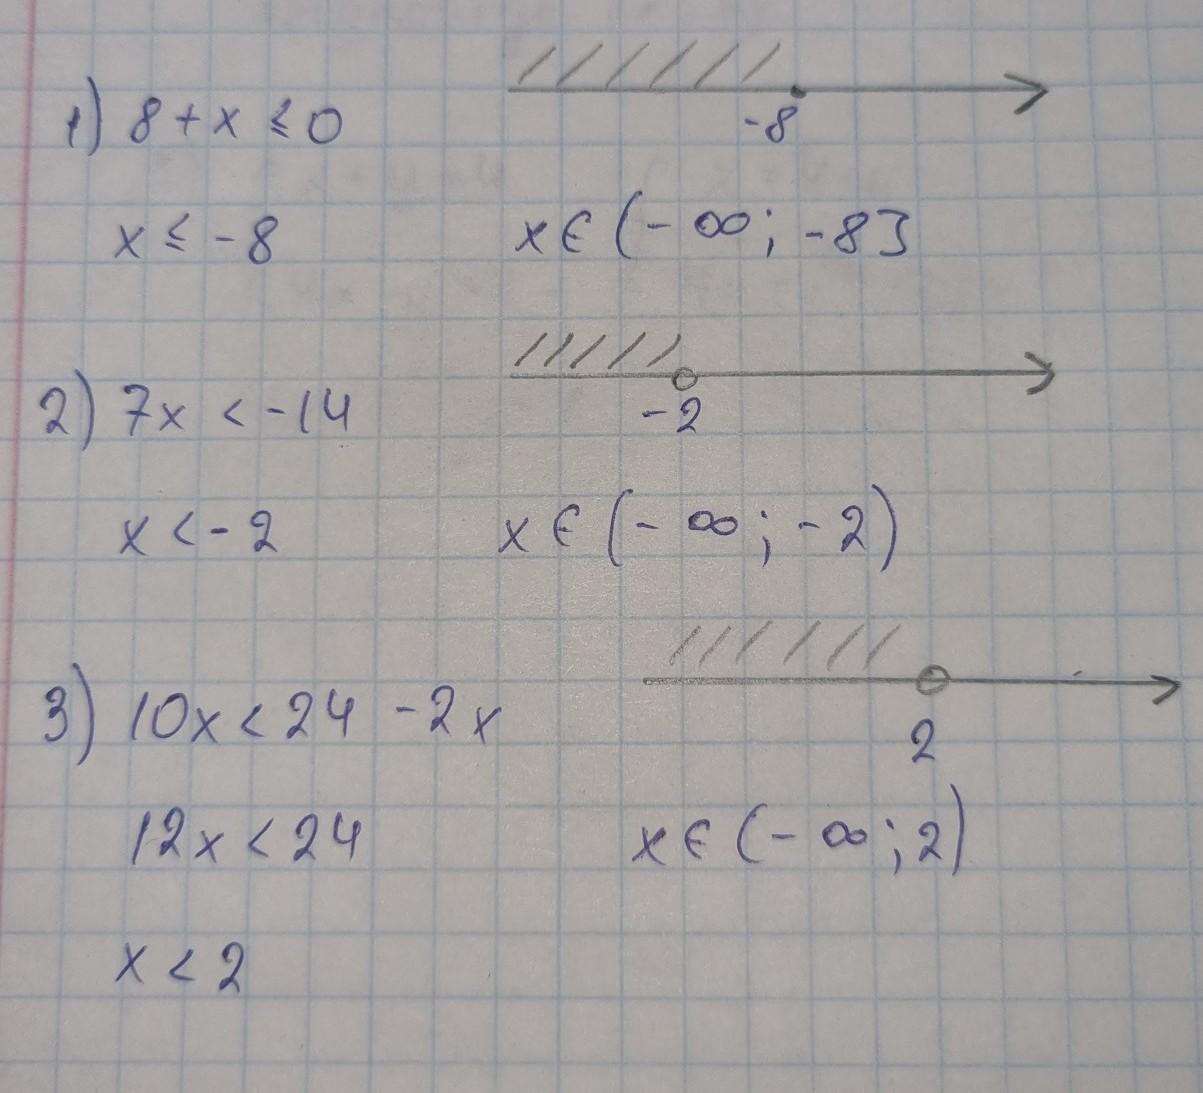 1) 8 + x ≤ 0
-8
x ≤ -8
x ∈ (-∞; -8]
2) 7x < -14
-2
x < -2
x ∈ (-∞; -2)
3) 10x < 24 - 2x
2
12x < 24
x ∈ (-∞; 2)
x < 2